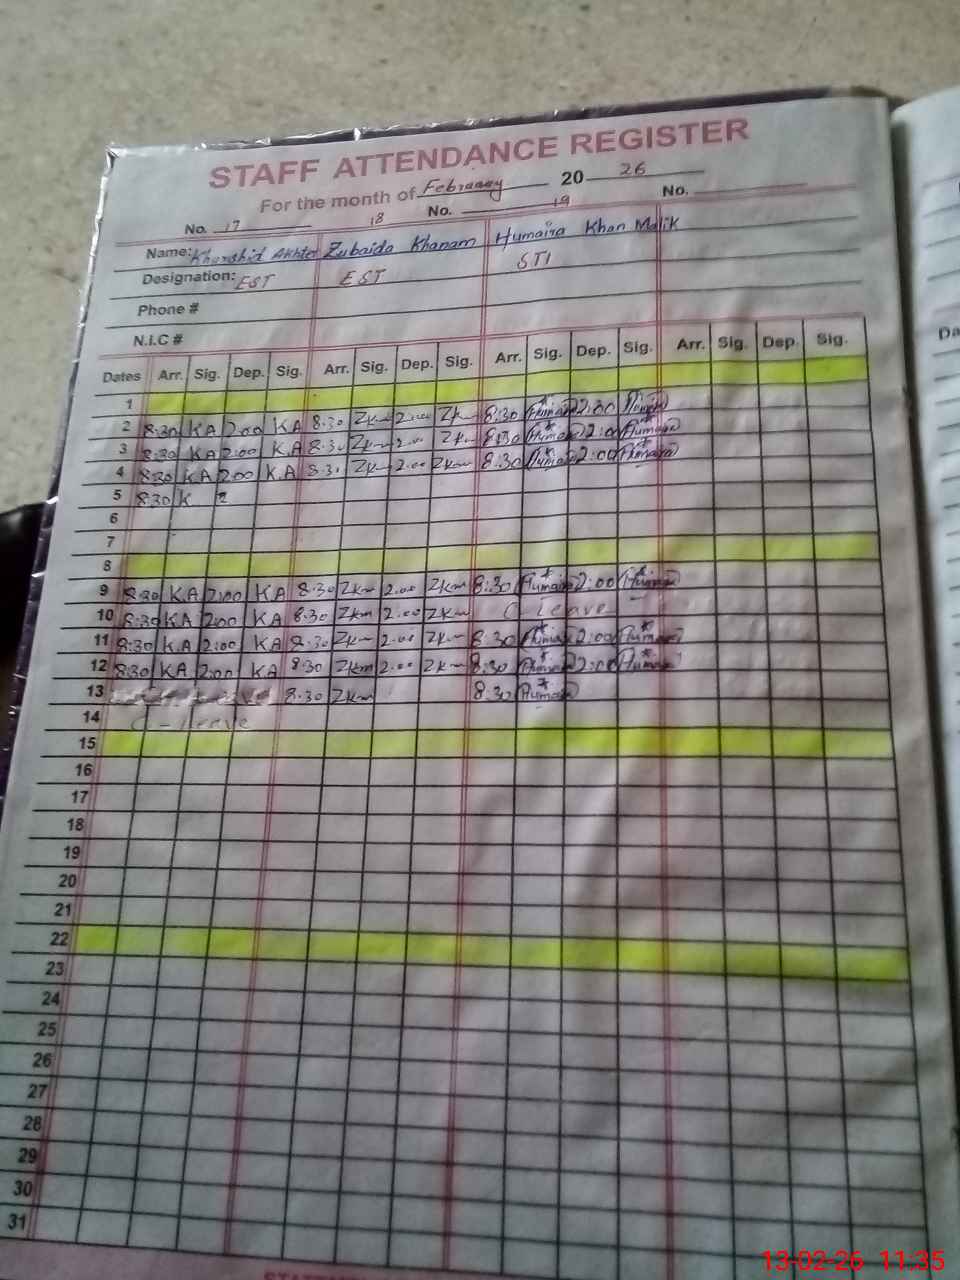 STAFF ATTENDANCE REGISTER
For the month of February 20 26
No. 17 18 No. 19 No.
Name: Khurshid Akhter Zubaida Khanam Humaira Khan Malik
Designation: EST EST STI
Phone #
N.I.C #
Dates Arr. Sig. Dep. Sig. Arr. Sig. Dep. Sig. Arr. Sig. Dep. Sig. Arr. Sig. Dep. Sig.
1
2 8:30 KA 2:00 KA 8:30 Zkm 2:00 Zkm 8:30 Humaira 2:00 Humaira
3 8:30 KA 2:00 K.A 8:30 Zkm 2:00 Zkm 8:30 Humaira 2:00 Humaira
4 8:30 KA 2:00 K.A 8:30 Zkm 2:00 Zkm 8:30 Humaira 2:00 Humaira
5 8:30 K. 2
6
7
8
9 8:30 KA 2:00 KA 8:30 Zkm 2:00 Zkm 8:30 Humaira 2:00 Humaira
10 8:30 KA 2:00 KA 8:30 Zkm 2:00 Zkm C-Leave
11 8:30 K.A 2:00 KA 8:30 Zkm 2:00 Zkm 8:30 Humaira 2:00 Humaira
12 8:30 KA 2:00 KA 8:30 Zkm 2:00 Zkm 8:30 Humaira 2:00 Humaira
13 8:30 Zkm 8:30 Humaira
14 C-Leave
15
16
17
18
19
20
21
22
23
24
25
26
27
28
29
30
31
13-02-26 11:35